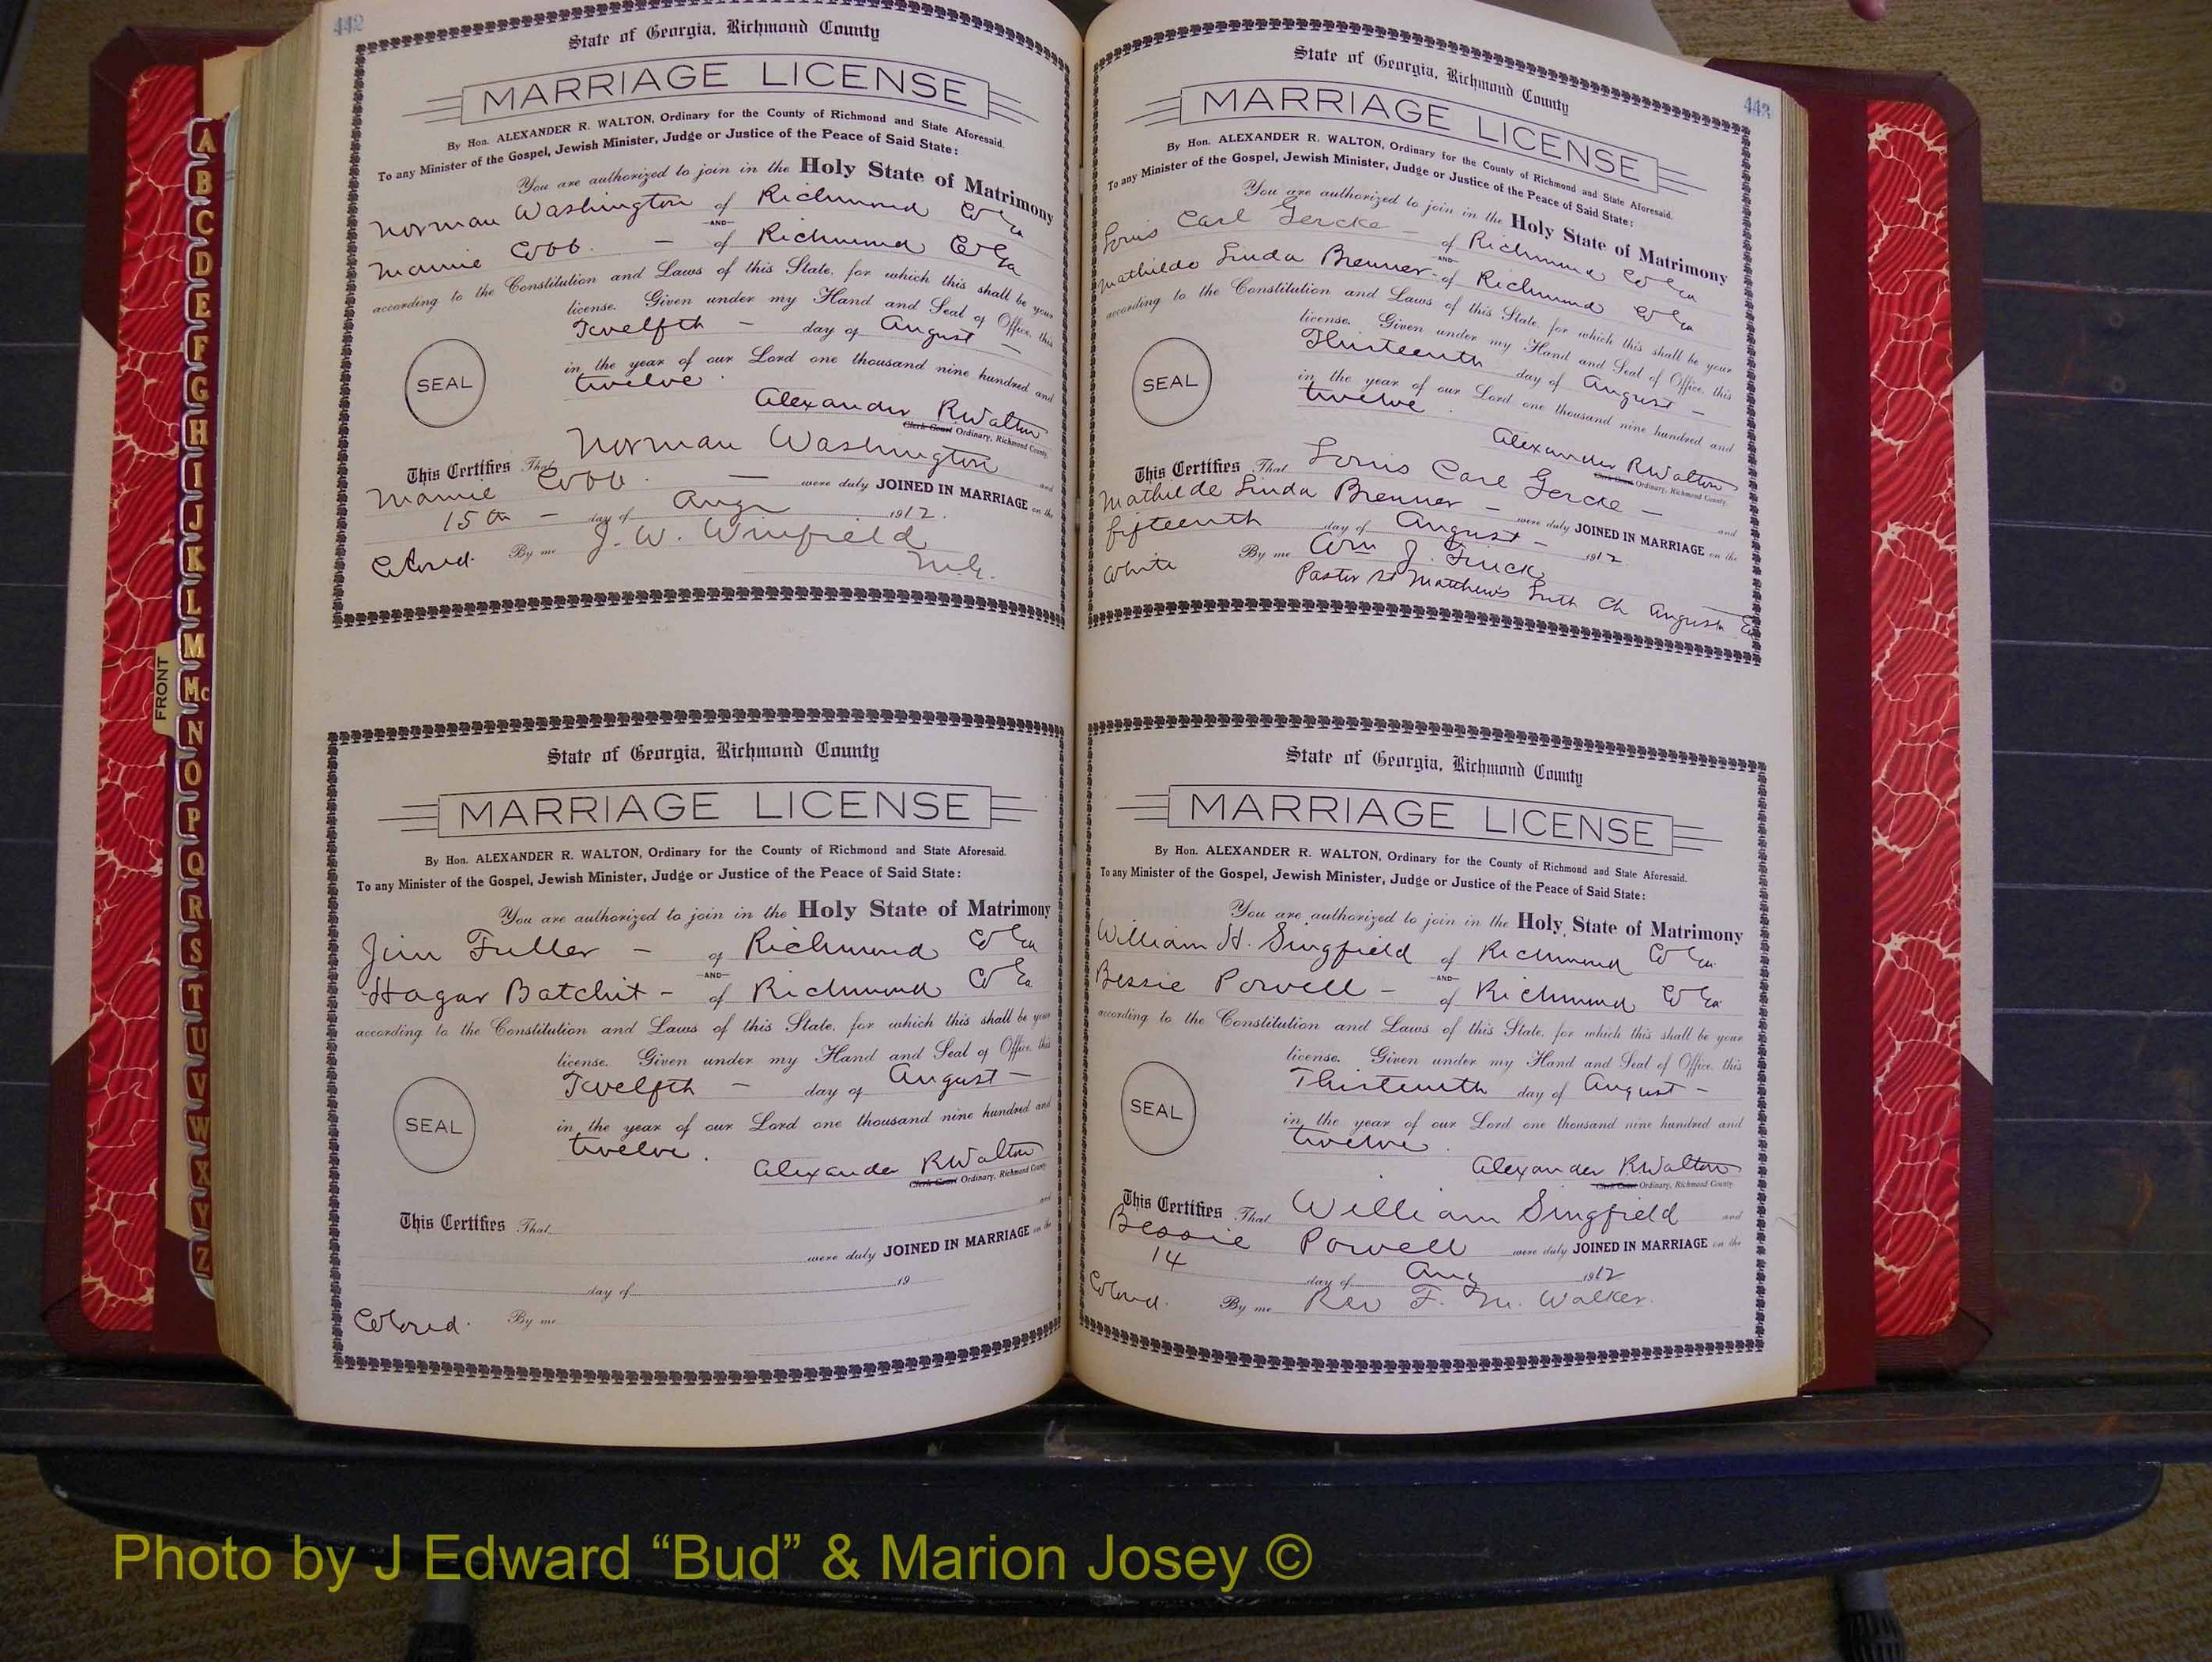 442
State of Georgia, Richmond County
MARRIAGE LICENSE
By Hon. ALEXANDER R. WALTON, Ordinary for the County of Richmond and State Aforesaid.
To any Minister of the Gospel, Jewish Minister, Judge or Justice of the Peace of Said State:
You are authorized to join in the Holy State of Matrimony
Norman Washington of Richmond Co Ga
AND
Mamie Cobb. — of Richmond Co Ga
according to the Constitution and Laws of this State, for which this shall be your
license. Given under my Hand and Seal of Office, this
Twelfth — day of August —
in the year of our Lord one thousand nine hundred and
SEAL
twelve.
Alexander R Walton
Clerk Court Ordinary, Richmond County
This Certifies That Norman Washington and
Mamie Cobb. — were duly JOINED IN MARRIAGE on the
15th — day of Aug 1912.
Colored. By me J. W. Winfield
M.G.
State of Georgia, Richmond County
MARRIAGE LICENSE
By Hon. ALEXANDER R. WALTON, Ordinary for the County of Richmond and State Aforesaid.
To any Minister of the Gospel, Jewish Minister, Judge or Justice of the Peace of Said State:
You are authorized to join in the Holy State of Matrimony
Jim Fuller — of Richmond Co Ga
AND
Hagar Batchit — of Richmond Co Ga
according to the Constitution and Laws of this State, for which this shall be your
license. Given under my Hand and Seal of Office, this
Twelfth — day of August —
in the year of our Lord one thousand nine hundred and
SEAL
twelve.
Alexander R Walton
Clerk Court Ordinary, Richmond County
This Certifies That and
were duly JOINED IN MARRIAGE on the
day of 19
Colored. By me
443
State of Georgia, Richmond County
MARRIAGE LICENSE
By Hon. ALEXANDER R. WALTON, Ordinary for the County of Richmond and State Aforesaid.
To any Minister of the Gospel, Jewish Minister, Judge or Justice of the Peace of Said State:
You are authorized to join in the Holy State of Matrimony
Louis Carl Gercke — of Richmond Co Ga
AND
Mathilde Linda Brenner - of Richmond Co Ga
according to the Constitution and Laws of this State, for which this shall be your
license. Given under my Hand and Seal of Office, this
Thirteenth day of August —
in the year of our Lord one thousand nine hundred and
SEAL
twelve.
Alexander R Walton
Clerk Court Ordinary, Richmond County
This Certifies That Louis Carl Gercke — and
Mathilde Linda Brenner — were duly JOINED IN MARRIAGE on the
fifteenth day of August — 1912.
White By me Wm J. Finck
Pastor St Matthews Luth Ch Augusta Ga
State of Georgia, Richmond County
MARRIAGE LICENSE
By Hon. ALEXANDER R. WALTON, Ordinary for the County of Richmond and State Aforesaid.
To any Minister of the Gospel, Jewish Minister, Judge or Justice of the Peace of Said State:
You are authorized to join in the Holy State of Matrimony
William H. Singfield of Richmond Co Ga
AND
Bessie Powell — of Richmond Co Ga
according to the Constitution and Laws of this State, for which this shall be your
license. Given under my Hand and Seal of Office, this
Thirteenth day of August —
in the year of our Lord one thousand nine hundred and
SEAL
twelve.
Alexander R Walton
Clerk Court Ordinary, Richmond County
This Certifies That William Singfield and
Bessie Powell were duly JOINED IN MARRIAGE on the
14 day of Aug 1912
Colored. By me Rev F. M. Walker.
A
B
C
D
E
F
G
H
I
J
K
L
M
Mc
N
O
P
Q
R
S
T
U
V
W
X
Y
Z
FRONT
Photo by J Edward “Bud” & Marion Josey ©